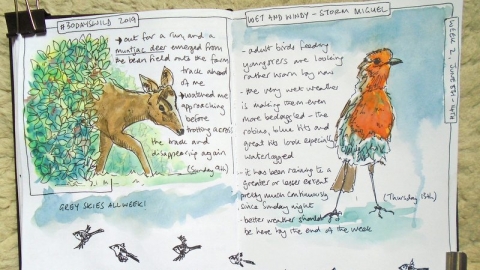 #30DAYSWILD 2019
→out for a run and a
muntjac deer emerged from
the bean field onto the farm
track ahead
of me
→watched me
approaching
before
trotting across
the track and
disappearing again
(Sunday 9th)
GREY SKIES ALL WEEK!
WET AND WINDY - STORM MIGUEL
WEEK 2, JUNE
- adult birds feeding
youngsters are looking
rather worn by now
- the very wet weather
is making them even
more bedraggled - the
robins, blue tits and
great tits look especially
waterlogged
- it has been raining to a
greater or lesser extent
pretty much continuously
since Sunday night
- better weather should
be here by the end of the week
(Thursday 13th)